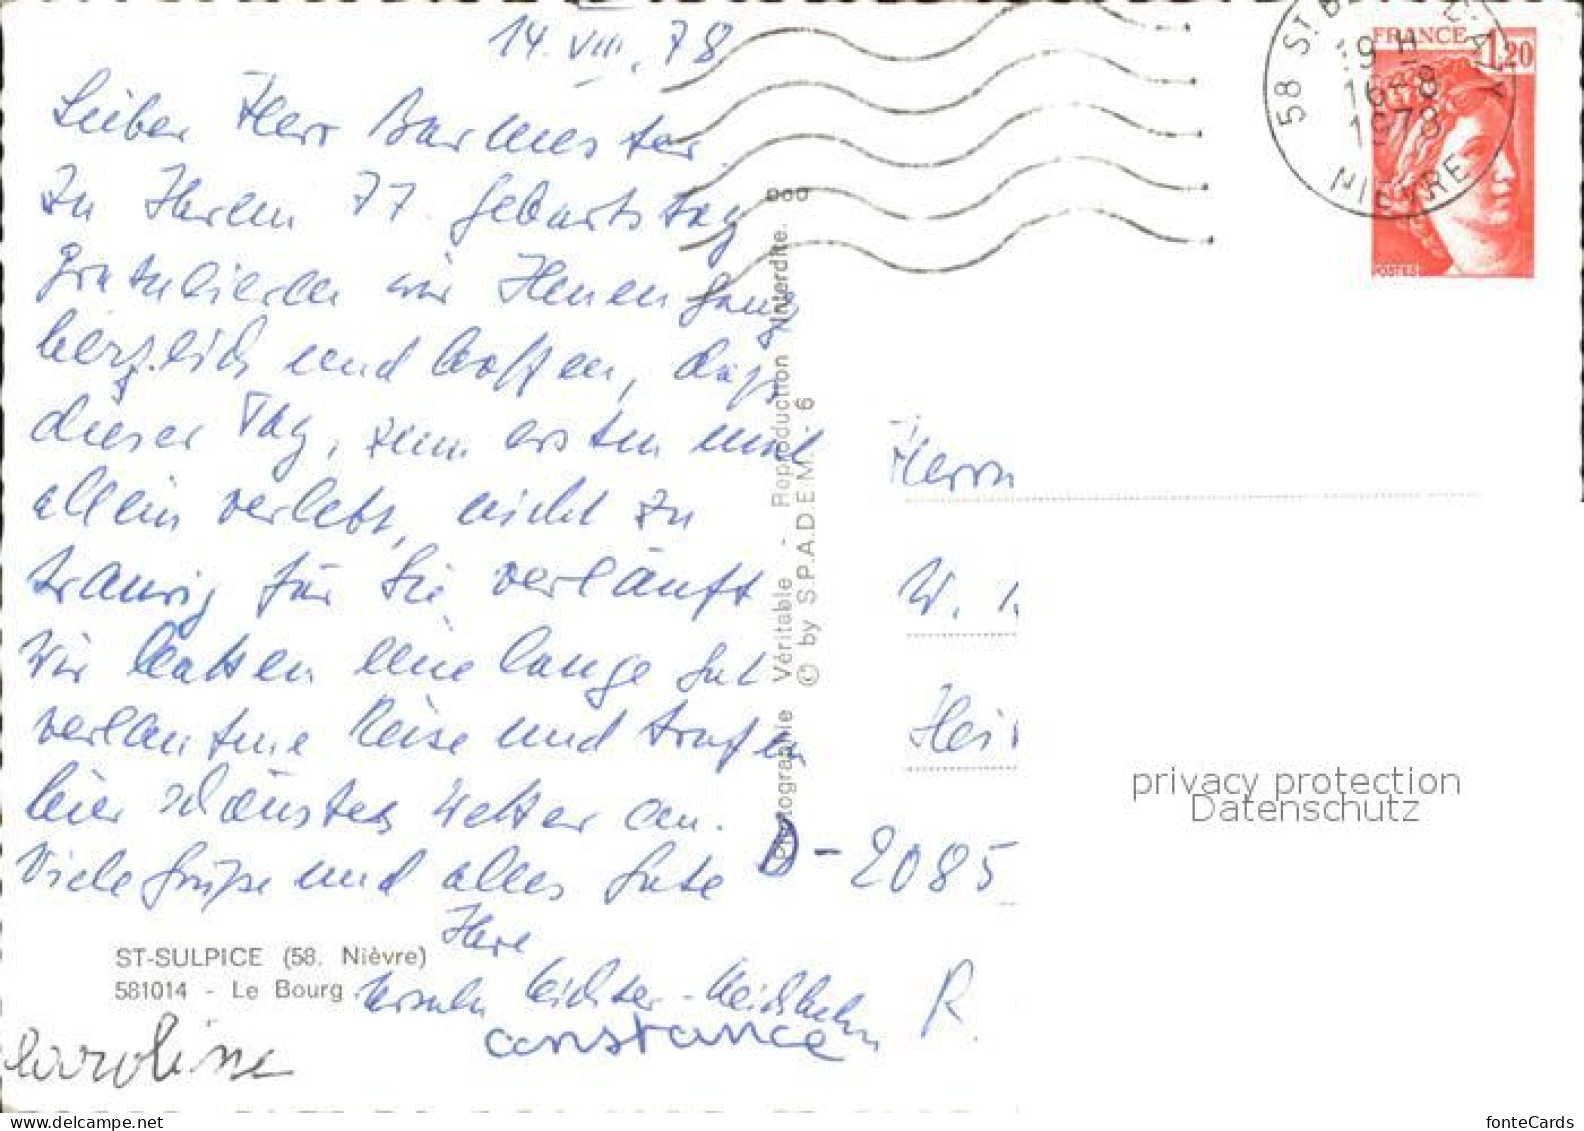 14. VIII. 78
Lieber Herr Barmester
Zu Ihrem 77. Geburtstag
gratulieren wir Ihnen ganz
herzlich und hoffen, daß
dieser Tag, zum ersten mal
allein verlebt, nicht zu
traurig für Sie verläuft
Wir hatten eine lange gut
verlaufene Reise und trafen
hier schönstes Wetter an.
Viele Grüße und alles Gute
Ihre
Ursula
constance
caroline
ST-SULPICE (58. Nièvre)
581014 - Le Bourg
Photographie Véritable - Reproduction Interdite.
© by S.P.A.D.E.M. - 6
FRANCE 1,20
POSTES
19 H
16-8
1978
58 ST
NIEVRE
Herrn
W.
D-2085
R.
privacy protection
Datenschutz
fonteCards